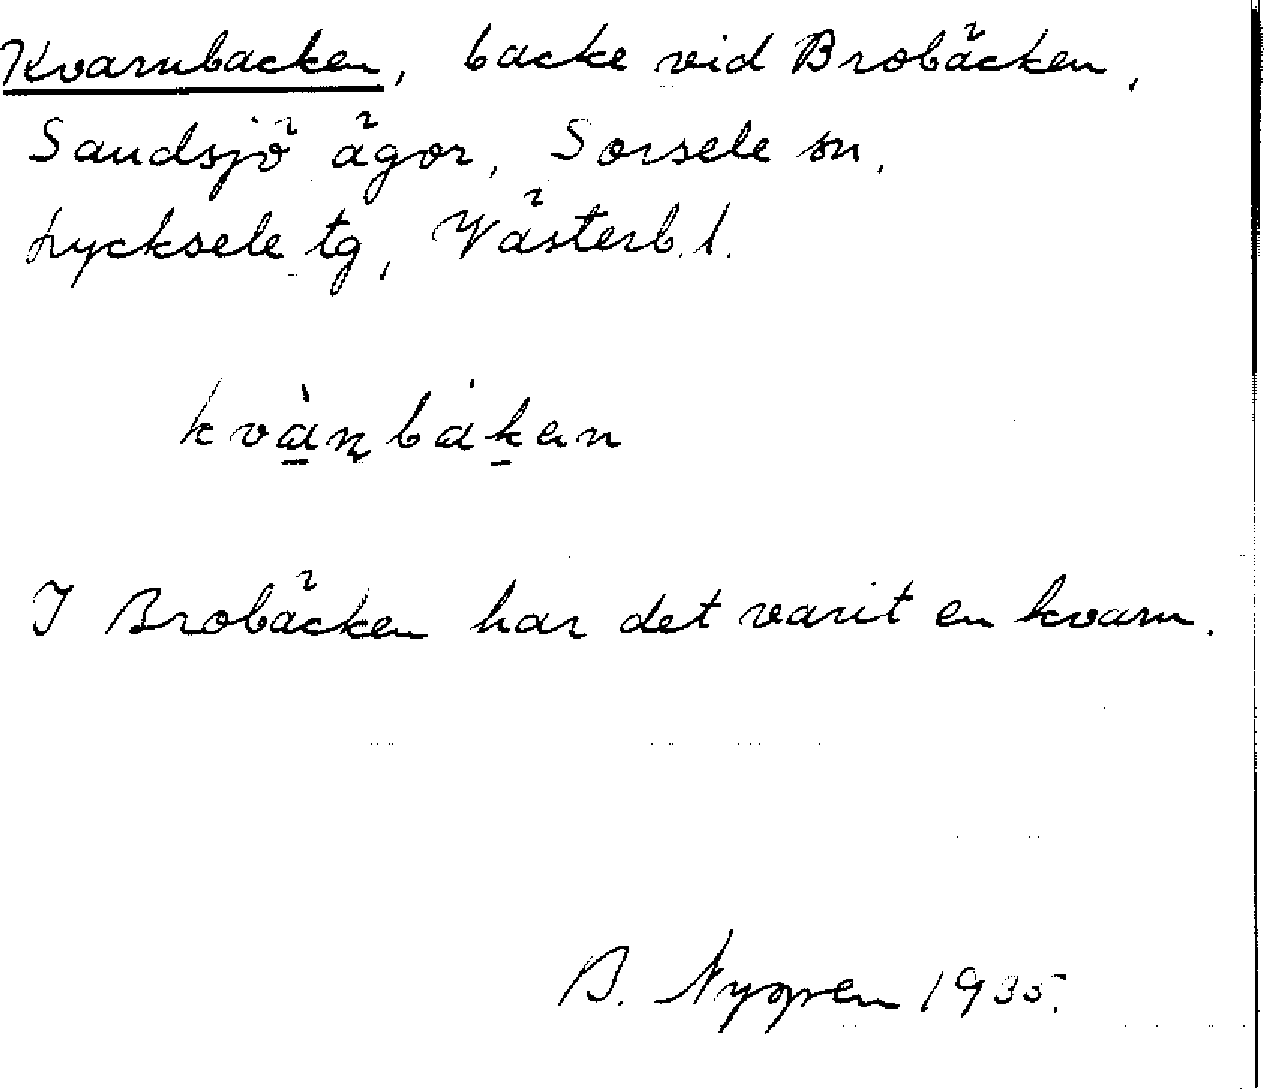 Kvarnbacken, backe vid Brobäcken,
Sandsjö ägor, Sorsele sn,
Lycksele tg, Västerb. l.
kvàṇbákan
I Brobäcken har det varit en kvarn.
B. Nygren 1935.